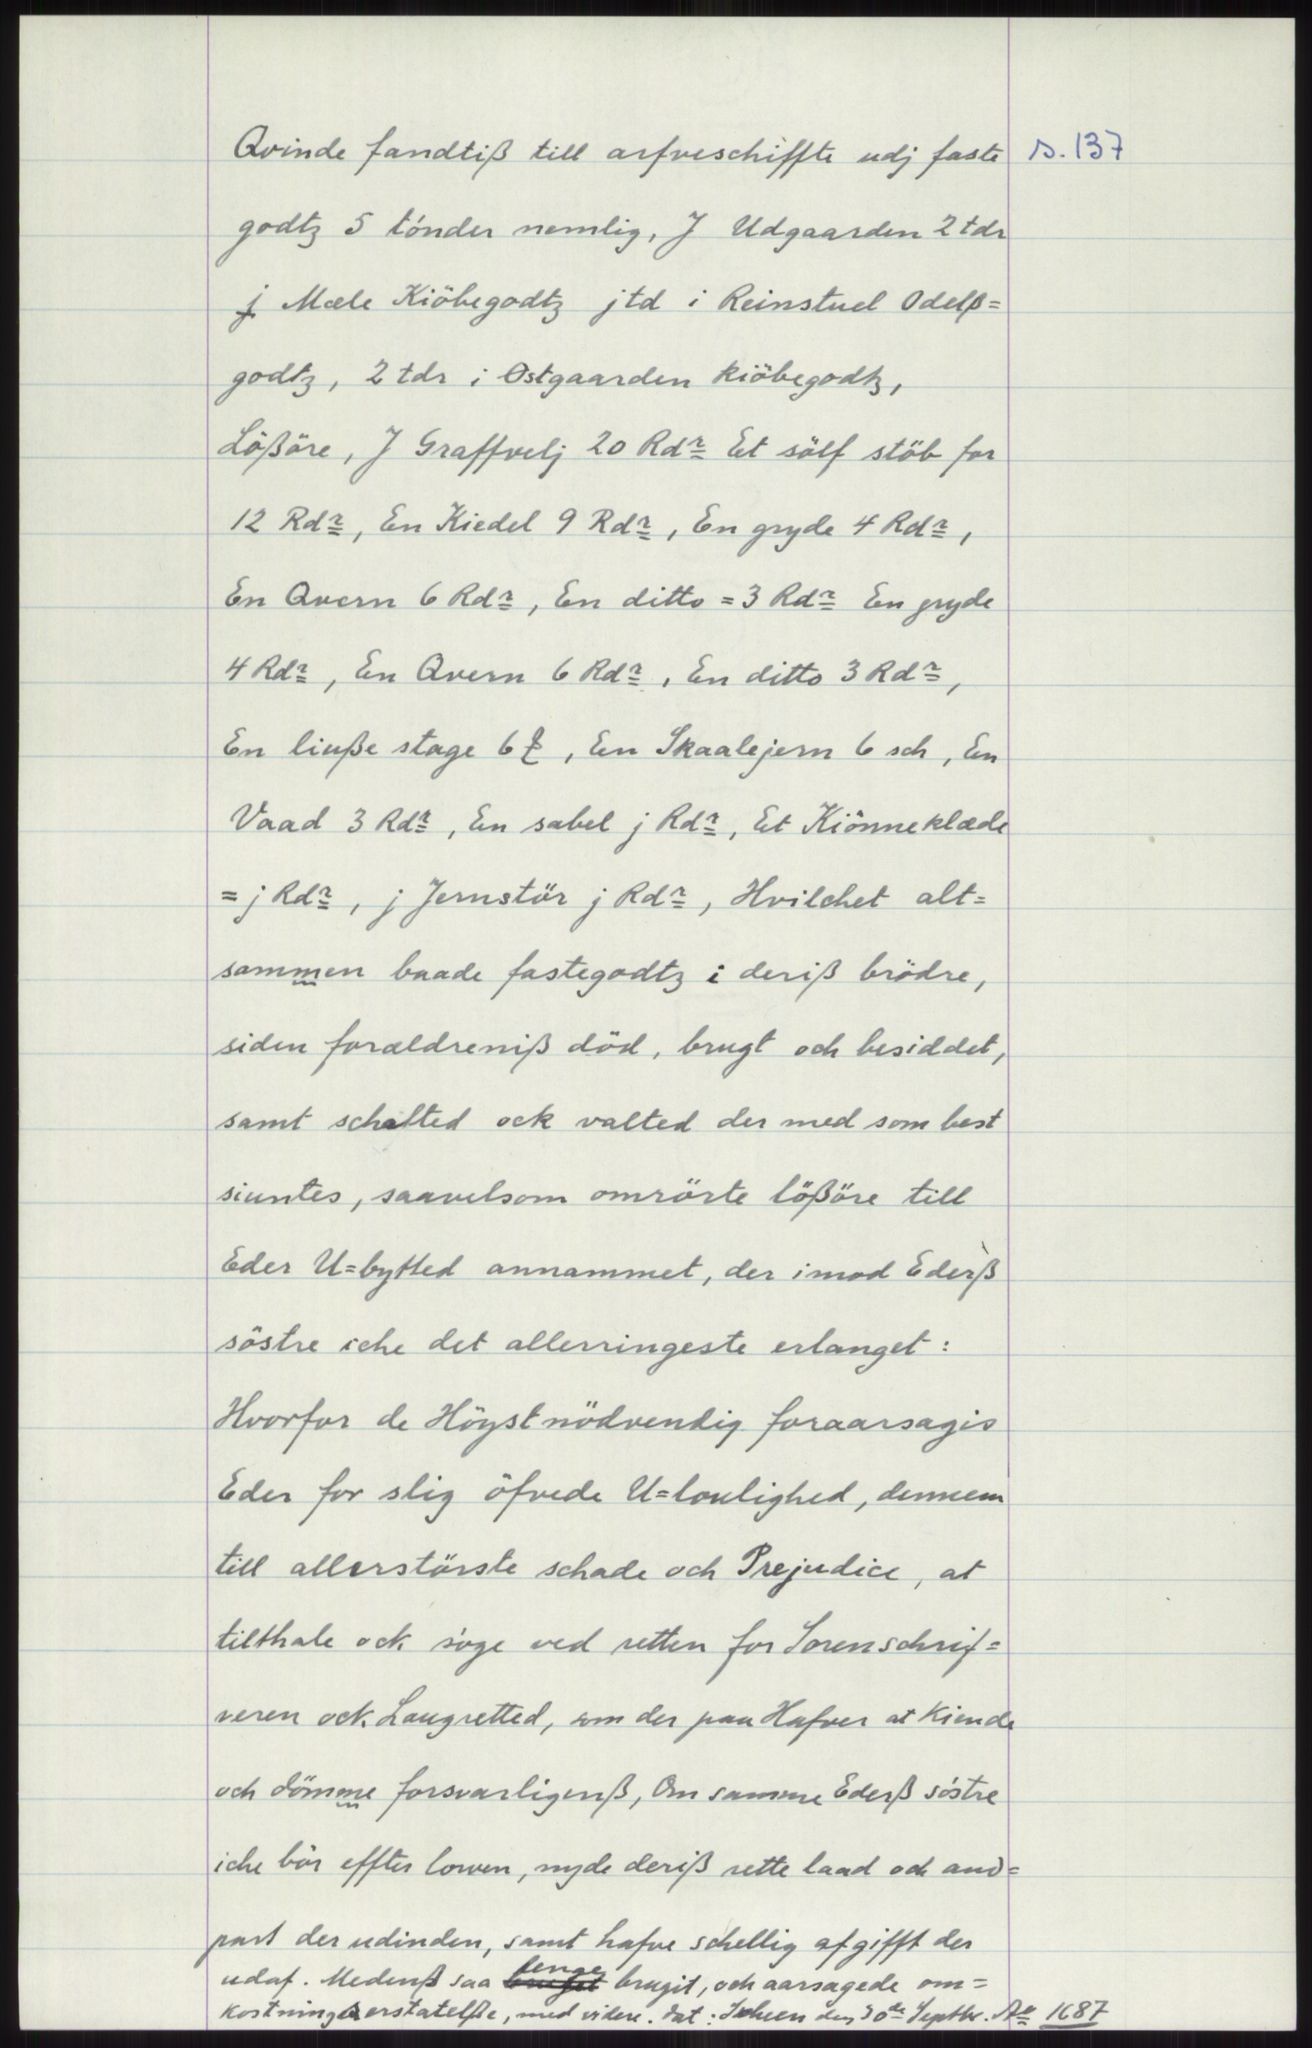 Qvinde fandtiß till arfveschiffte udj faste s. 137
godtz 5 tönder nemlig, J Udgaarden 2 tdr
j Mæle Kiöbegodtz j td i Reinstuel Odelß=
godtz, 2 tdr i Ostgaarden kiöbegodtz,
Lößöre, J Graffvelj 20 Rdr Et sölf stöb for
12 Rdr, En Kiedel 9 Rdr, En gryde 4 Rdr,
En Qvern 6 Rdr, En ditto = 3 Rdr En gryde
4 Rdr, En Qvern 6 Rdr, En ditto 3 Rdr,
En liuße stage 6, En Skaalejern 6 sch, En
Vaad 3 Rdr, En sabel j Rdr, Et Kiönneklæde
= j Rdr, j Jernstör j Rdr, Hvilchet alt=
sammen baade fastegodtz i deriß brödre,
siden forældreniß död, brugt och besiddet,
samt schalted ock valted der med som best
siuntes, saavelsom omrörte lößöre till
Eder U=bytted annammet, der imod Ederß
söstre iche det allerringeste erlanget:
Hvorfor de Höyst nödvendig foraarsagis
Eder for slig öfvede U=loulighed, dennem
till allerstörste schade och Prejudice, at
tilthale ock söge ved retten for Sorenschrif=
veren ock Laugretted, som der paa Hafver at Kiende
och dömme forsvarligenß, Om samme Ederß söstre
iche bör effter lowen, nyde deriß rette laad och and=
part der udinden, samt hafve schellig afgifft der
udaf. Medenß saa lenge brugit, och aarsagede om=
kostninger erstatelße, med videre. Dat: Scheen den 30de Septbr. Ao 1687